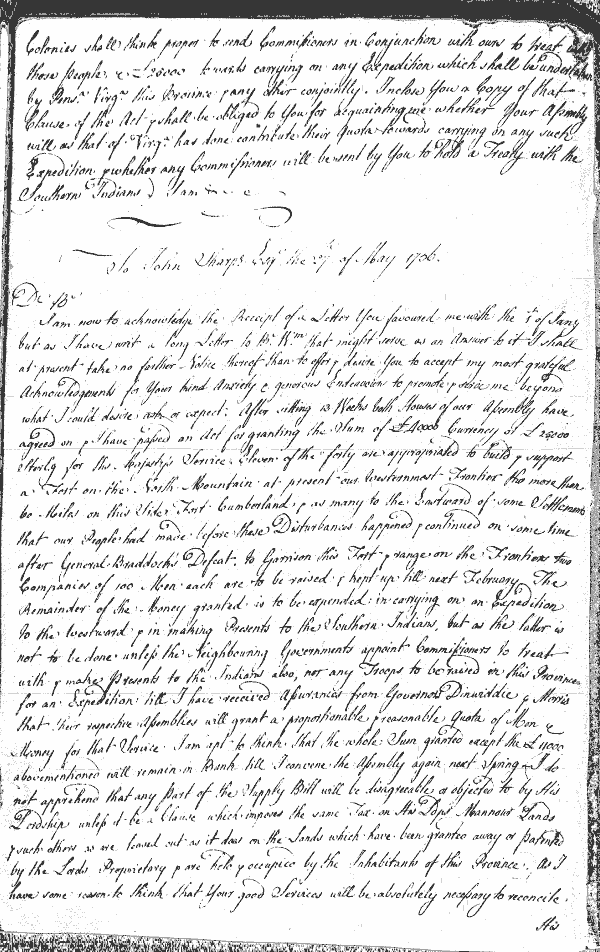 Colonies shall think proper to send Commissioners in Conjunction with ours to treat with
those People, & £25000 towards carrying on any Expedition which shall be undertaken
by Pens.ᵃ Virgᵃ this Province & any other conjointly. I inclose You a Copy of that
Clause of the Act & shall be obliged to You for acquainting me whether Your Assembly
will as that of Virgᵃ has done contribute their Quota towards carrying on any such
Expedition & whether any Commissioners will be sent by You to hold a Treaty with the
Southern Indians. I am
To John Sharpe Esqʳ the 27ᵗʰ of May 1756.
Dʳ Bʳ
I am now to acknowledge the Receipt of a Letter You favoured me with the of Janry
but as I have writ a long Letter to Bʳ Wᵐ that might serve as an Answer to it I shall
at present take no farther Notice thereof than to offer & desire You to accept my most grateful
Acknowledgments for Your kind Anxiety & generous Endeavours to promote & serve me beyond
what I could desire ask or expect: After sitting 13 Weeks both Houses of our Assembly have
agreed on & I have passed an Act for granting the Sum of £40000 Currency or £25000
Sterlg for his Majesty's Service. Eleven of the forty are appropriated to build & support
a Fort on the North Mountain at present our Westernmost Frontier tho more than
60 Miles on this Side Fort Cumberland, & as many to the Eastward of some Settlements
that our People had made before these Disturbances happened & continued on some time
after General Braddock's Defeat. To Garrison this Fort & range on the Frontiers two
Companies of 100 Men each are to be raised & kept up till next February. The
Remainder of the Money granted is to be expended in carrying on an Expedition
to the Westward & in making Presents to the Southern Indians, but as the latter is
not to be done unless the Neighbouring Governments appoint Commissioners to treat
with & make Presents to the Indians also, nor any Troops to be raised in this Province
for an Expedition till I have received Assurances from Governors Dinwiddie & Morris
that their respective Assemblies will grant a proportionable & reasonable Quota of Men &
Money for that Service I am apt to think that the whole Sum granted except the £11000
abovementioned will remain in Bank till I convene the Assembly again next Spring. I do
not apprehend that any Part of the Supply Bill will be disagreeable or objected to by His
Lordship unless it be a Clause which imposes the same Tax on His Ldps Mannour Lands
& such others as are leased out as it does on the Lands which have been granted away or patented
by the Lords Proprietary & are held & occupied by the Inhabitants of this Province. As I
have some reason to think that Your good Services will be absolutely necessary to reconcile
His